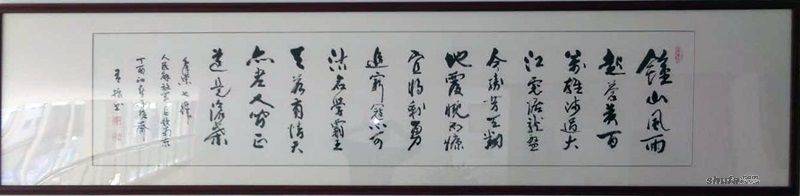 鍾山風雨
起蒼黃百
萬雄師過大
江虎踞龍盤
今勝昔天翻
地覆慨而慷
宜將剩勇
追窮寇不可
沽名學霸王
天若有情天
亦老人間正
道是滄桑
七律
人民解放軍占領南京
丁酉
書